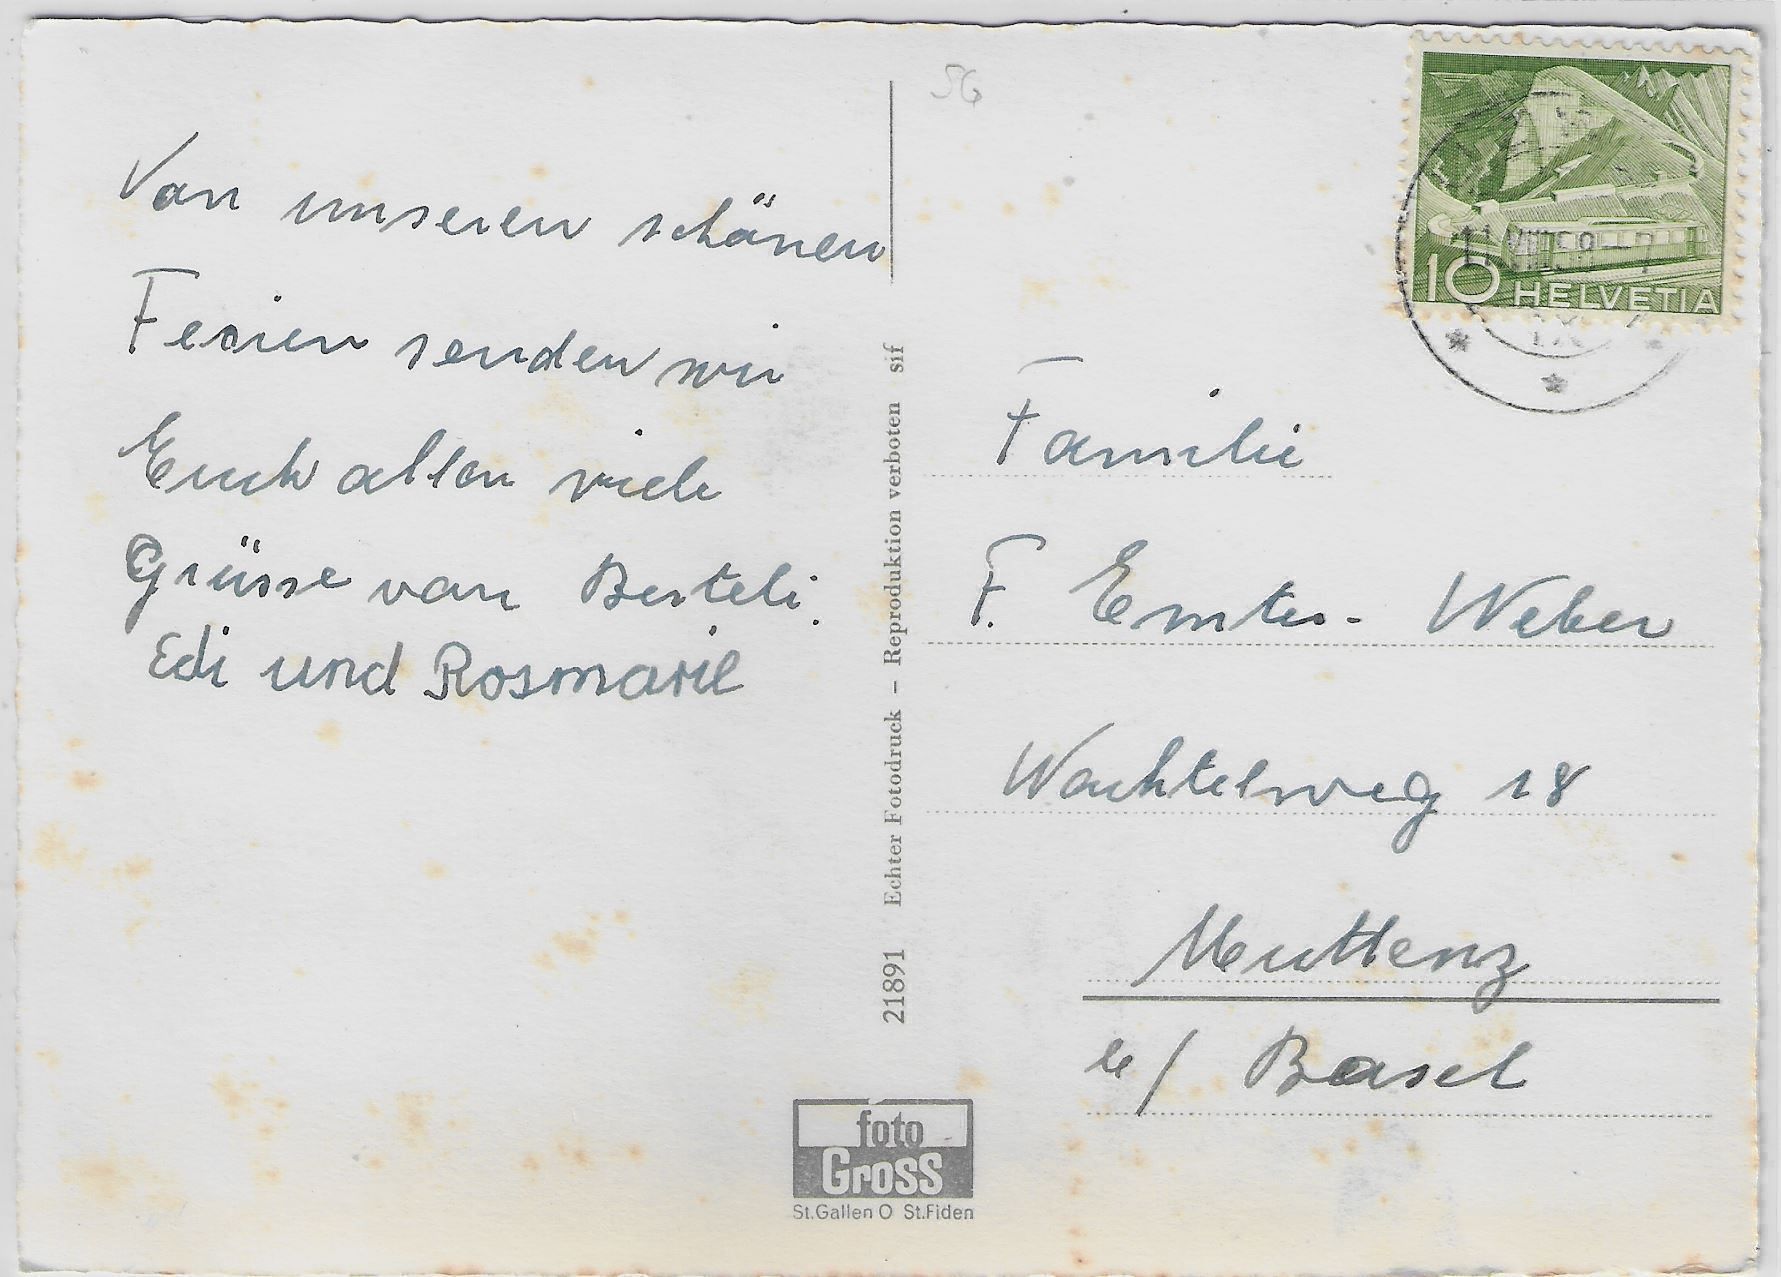 Von unseren schönen
Ferien senden wir
Euch allen viele
Grüsse von Berteli.
Edi und Rosmarie
21891 Echter Fotodruck – Reproduktion verboten sif
foto
Gross
St.Gallen O St.Fiden
SG
10 HELVETIA
Familie
F. Weber
Wachtelweg 18
Muttenz
b/ Basel